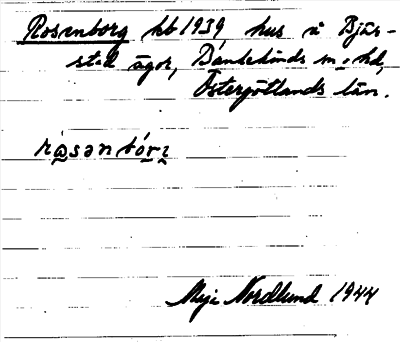 Rosenborg kb 1939, hus å Bjär-
sted ägor, Bankekinds sn o. hd,
Östergötlands län.
rå̀sənbórj
Maja Nordlund 1944